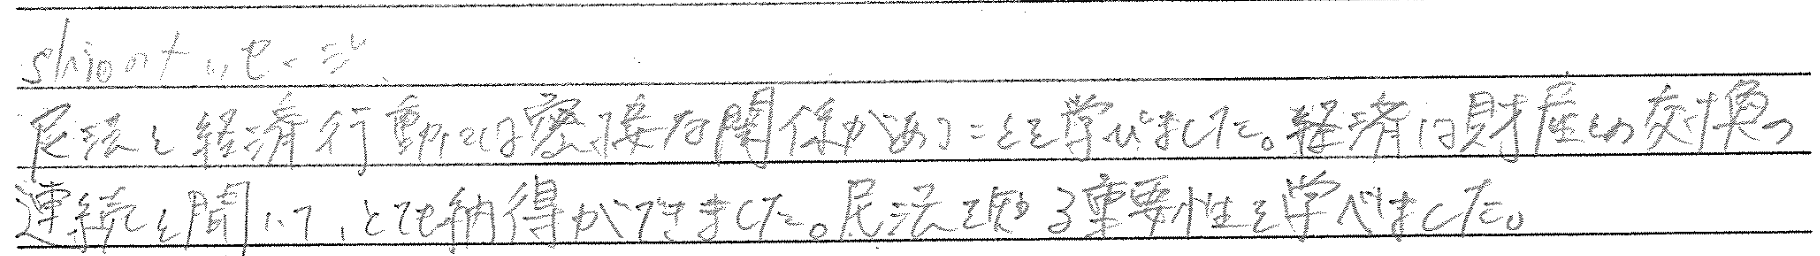 shionオーセージ
民法と経済行動には密接な関係があることを学びました。経済は財産の交換の
連続と聞いて、とても納得ができました。民法を知る重要性を学べました。